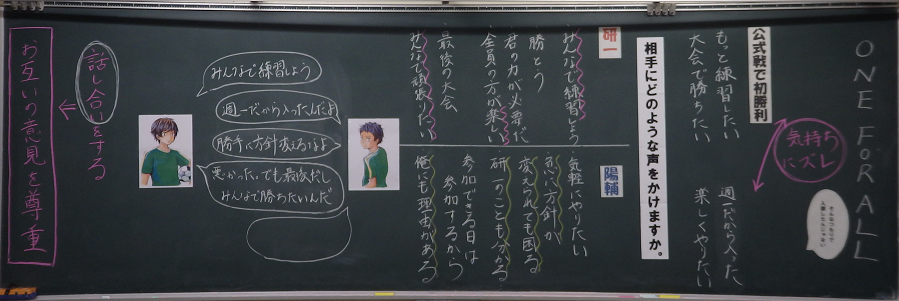 ONE FOR ALL
公式戦で初勝利
もっと練習したい
大会で勝ちたい
気持ち
にズレ
週一だから入った
楽しくやりたい
相手にどのような声をかけますか。
研一
みんなで練習しよう
勝とう
君の力が必要だ
全員の方が楽しい
最後の大会
みんなで頑張りたい
陽輔
気軽にやりたい
急に方針が
変えられても困る
研一のことも分かる
参加できる日は
参加するから
俺にも理由がある
みんなで練習しよう
週一だから入ったんだよ
勝手に方針変えるなよ
悪かった、でも最後だし
みんなで勝ちたいんだ
話し合いをする
お互いの意見を尊重